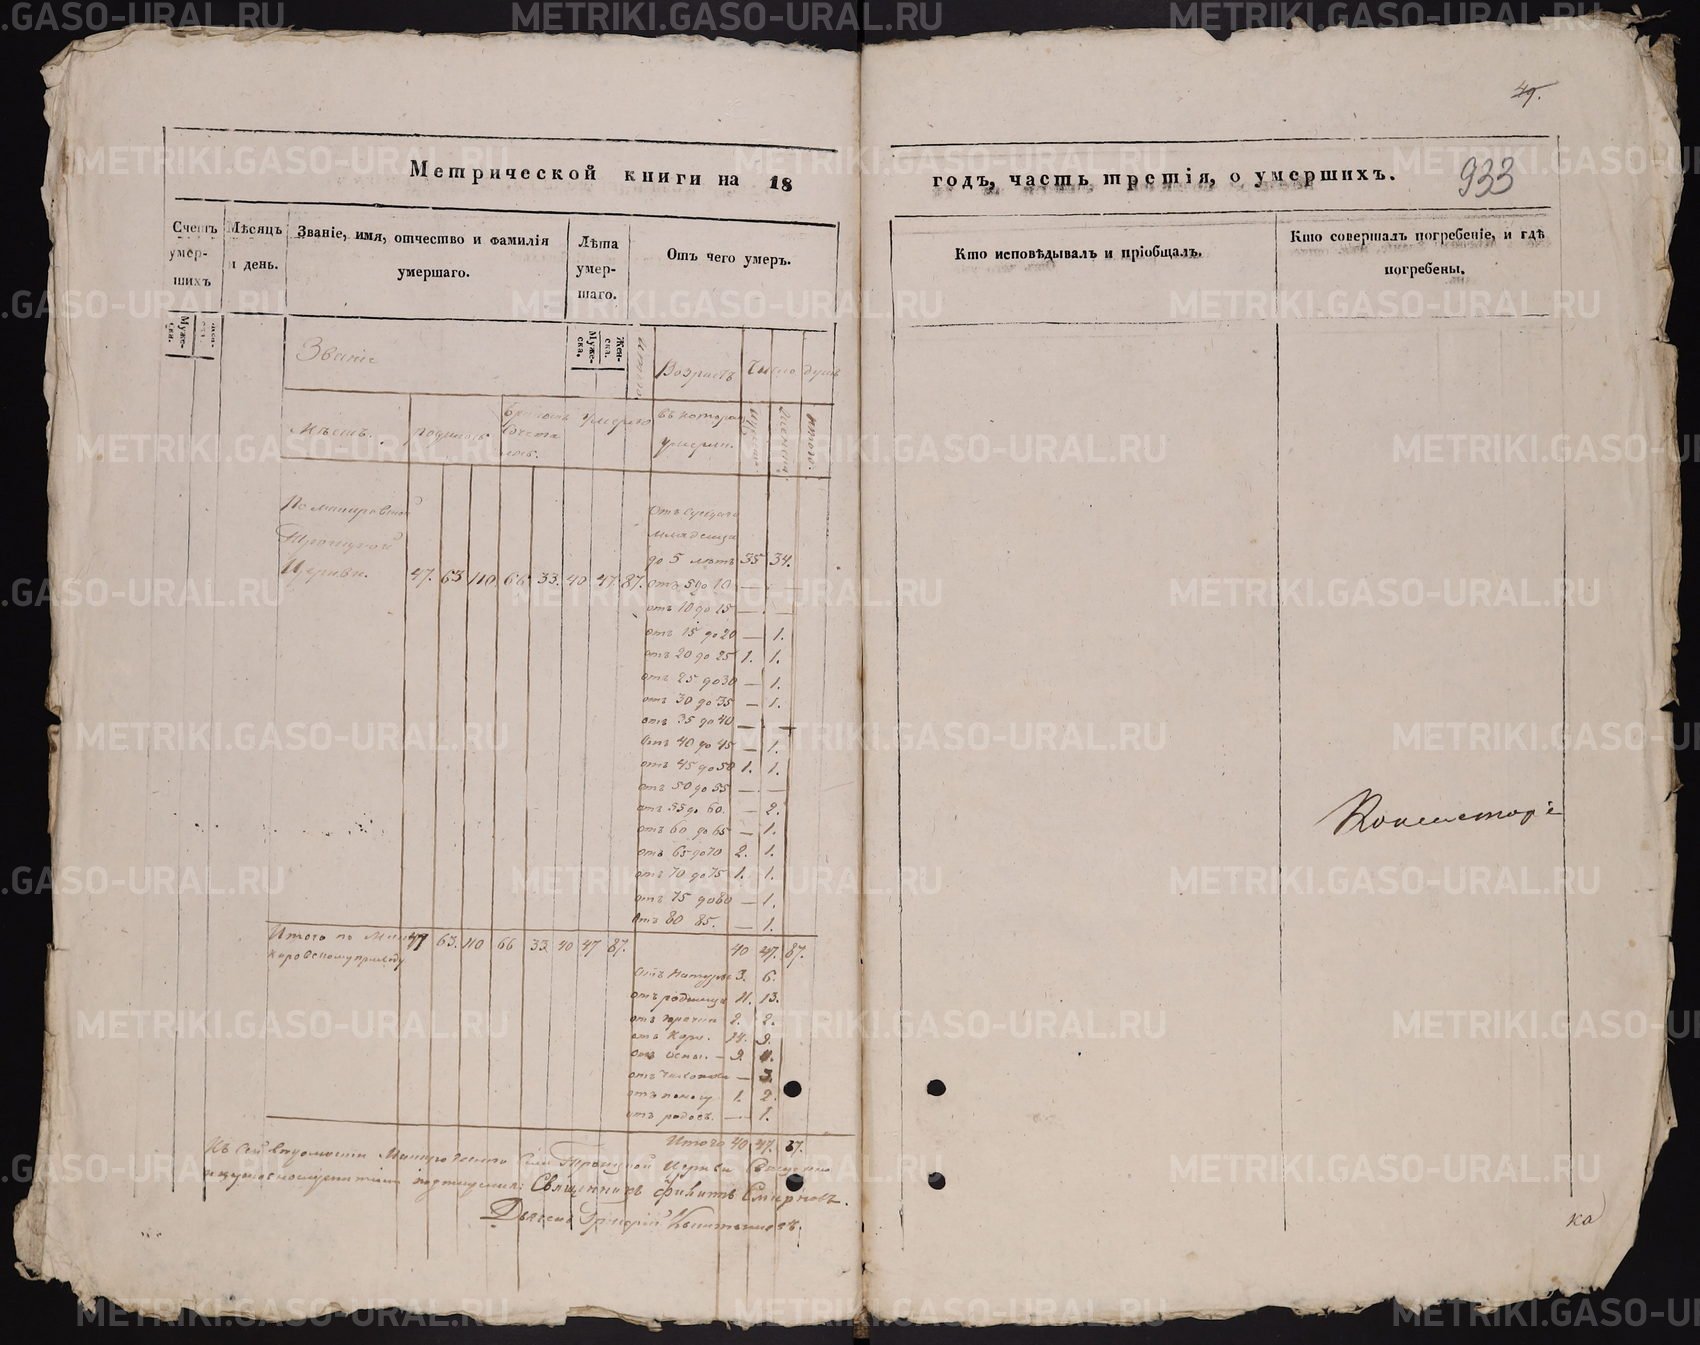 49.
Метрической книги на 18
годъ, часть третія, о умершихъ.
933
Счетъ умер-шихъ
Мѣсяцъ и день.
Званіе, имя, отчество и фамилія умершаго.
Лѣта умер-шаго.
Отъ чего умеръ.
Кто исповѣдывалъ и пріобщалъ.
Кто совершалъ погребеніе, и гдѣ погребены.
Муже-ска.
Муже-ска.
Жен-ска.
Званіе
Возрастъ
Число душъ
мѣстъ.
родилось
умерло
въ котором
умерли.
Итого.
Троицкой
Церкви.
47. 63 110 66 33. 40 47. 87.
младенца
до 5 летъ 35 34.
отъ 5 до 10 — —
отъ 10 до 15 — —
отъ 15 до 20 — 1.
отъ 20 до 25 1. 1.
отъ 25 до 30 — 1.
отъ 30 до 35 — 1.
отъ 35 до 40 — —
отъ 40 до 45 — 1.
отъ 45 до 50 1. 1.
отъ 50 до 55 — —
отъ 55 до 60. — 2.
отъ 60 до 65 — 1.
отъ 65 до 70 2. 1.
отъ 70 до 75 1. 1.
отъ 75 до 80 — 1.
отъ 80 85. — 1.
Итого по
47 63. 110 66 33 40 47 87.
40 47. 87.
отъ натуры 3. 6.
отъ родимца 11. 13.
отъ горячки 2. 2.
отъ Кори. 14.
отъ оспы.
отъ чахотки — 3.
отъ поносу 1. 2.
отъ родовъ. — 1.
Итого 40 47. 87.
Троицкой Церкви
подписуемся: Священникъ Филипъ Смирновъ.
Дьяконъ Григорій
Консисторіе
ка
METRIKI.GASO-URAL.RU